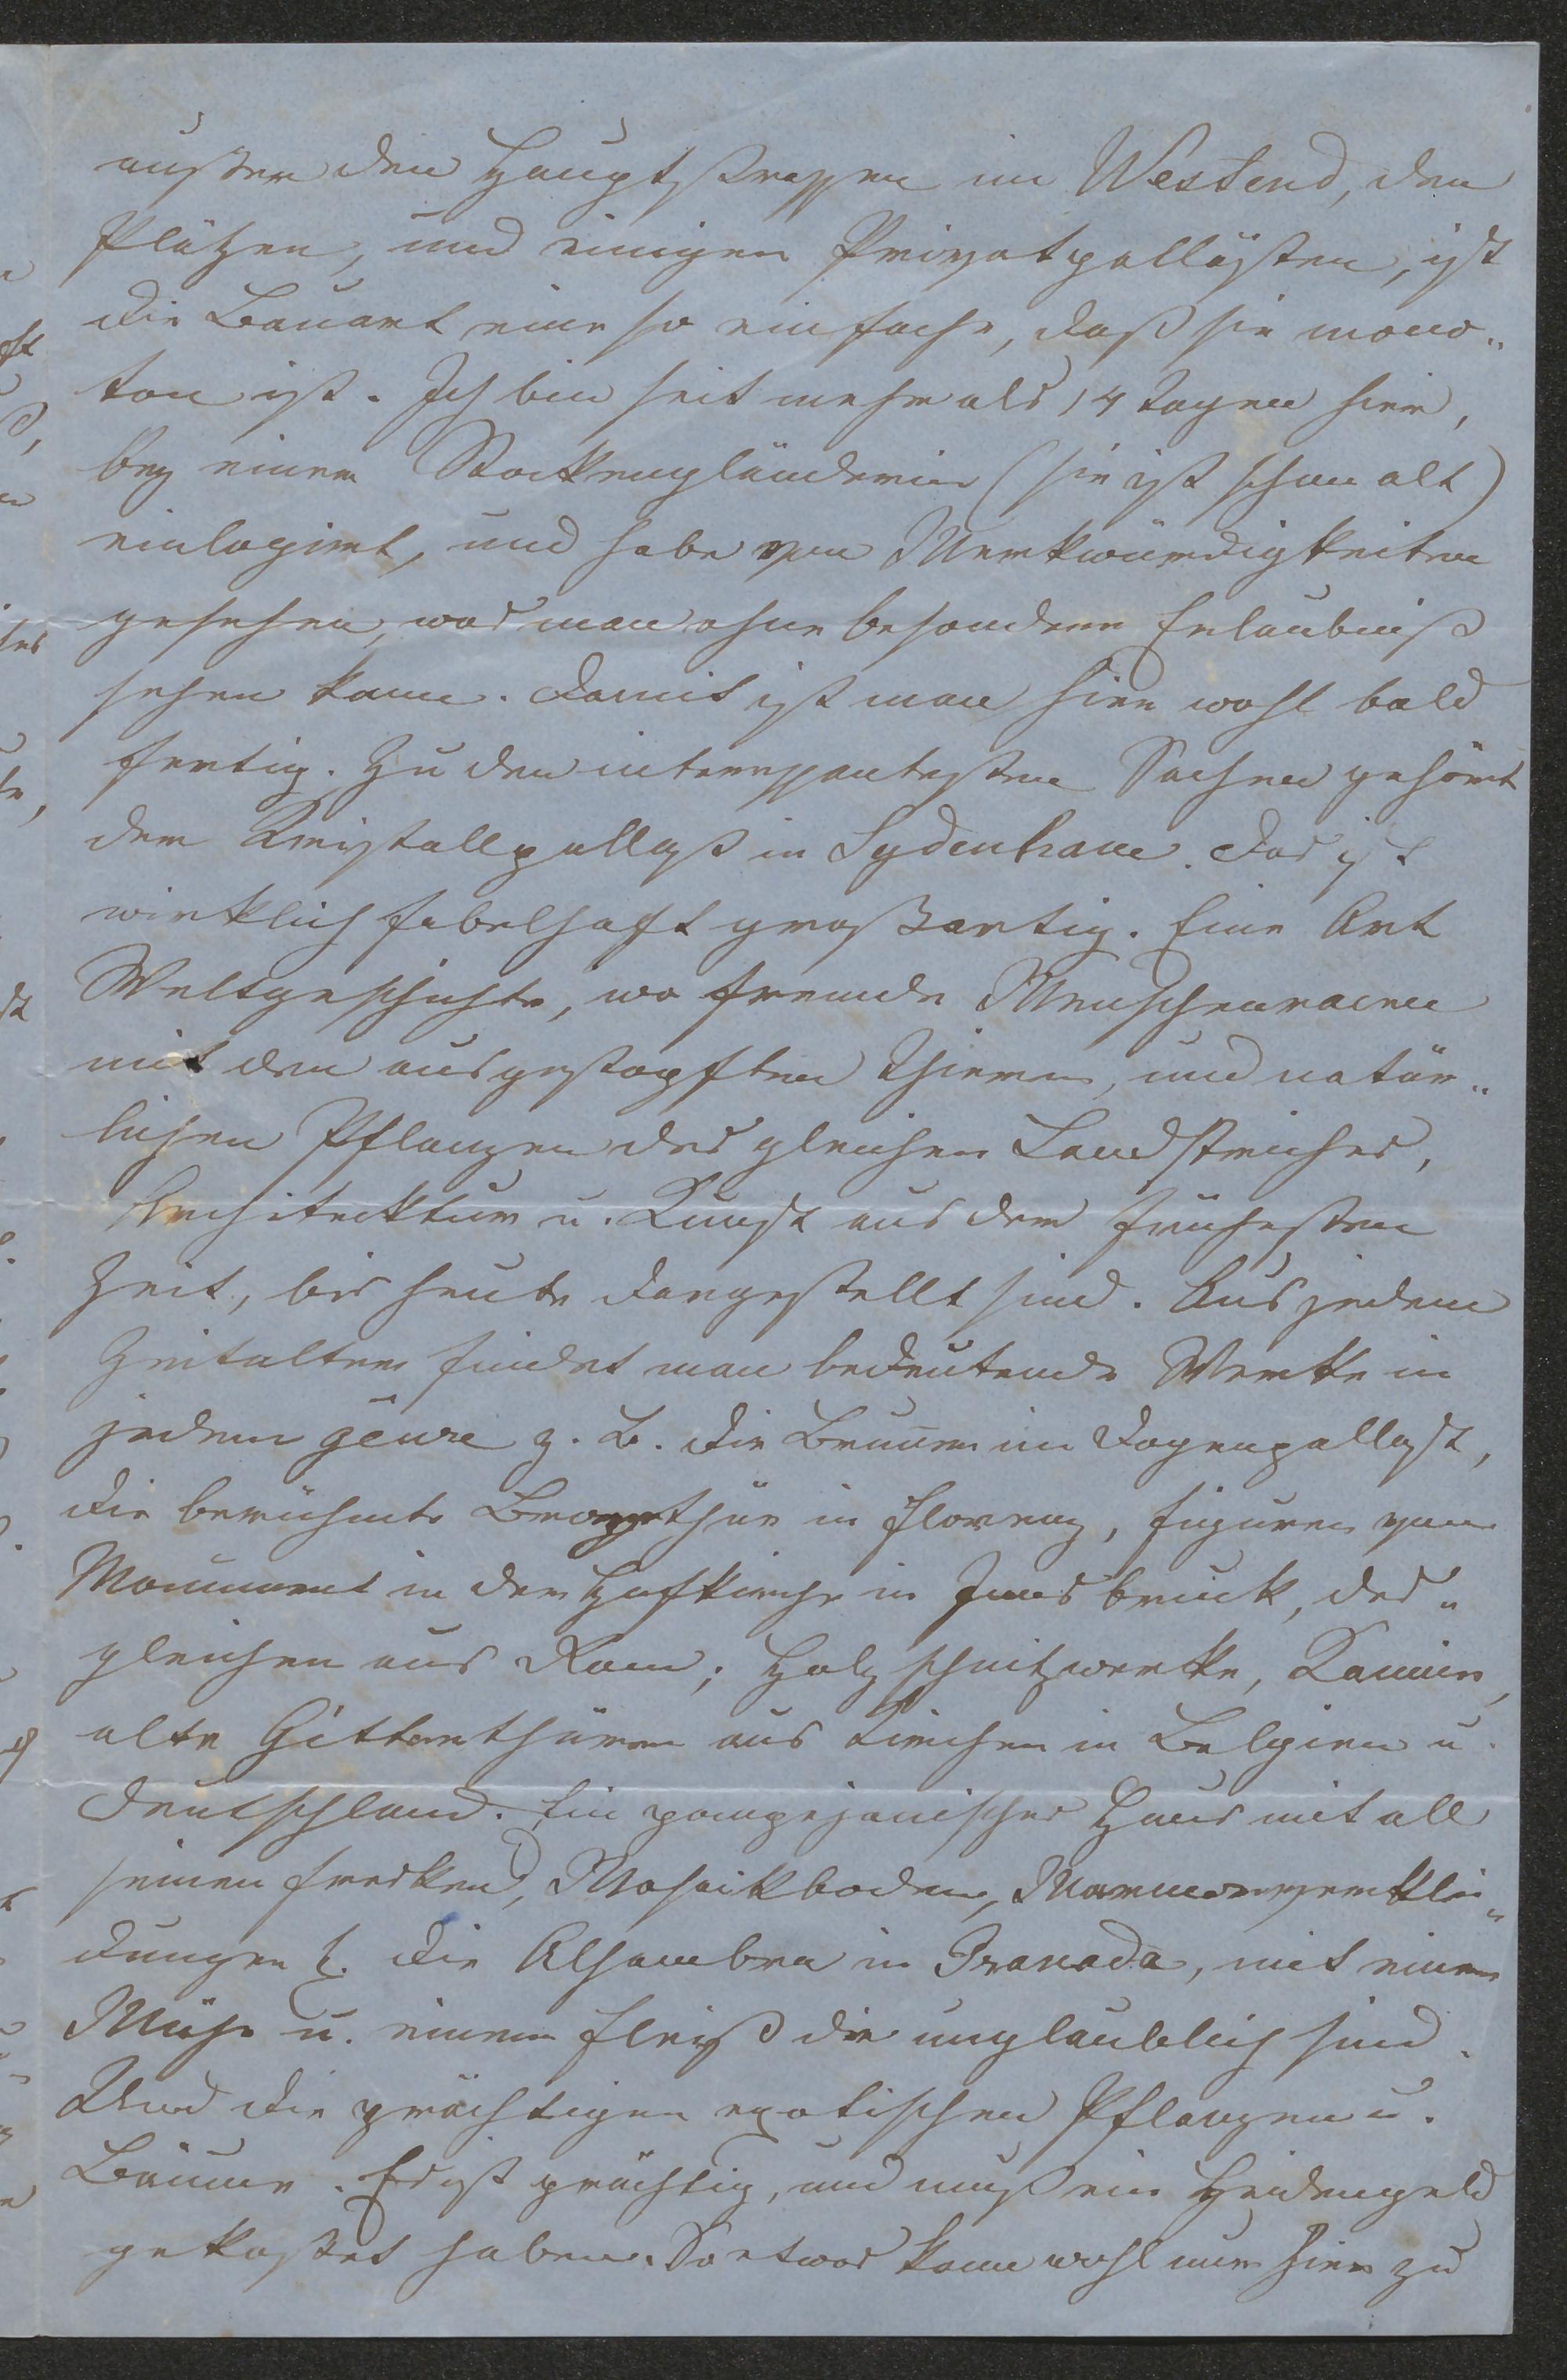 außer den Hauptstrassen im Westend, den
Plätzen, und einigen Privatpallästen, ist
die Bauart eine so einfache, daß sie mono„
ton ist. Ich bin seit mehr als 14 Tagen hier,
bey einer Stockengländerin (sie ist schon alt)
einlogirt, und habe von Merkwürdigkeiten
gesehen, was man ohne besondere Erlaubniß
sehen kann. Damit ist man hier wohl bald
fertig. Zu den interessantesten Sachen gehört
der Kristallpallast in Sydenham. Das ist
wirklich fabelhaft großartig. Eine Art
Weltgeschichte, wo fremde Menschenracen
mit den ausgestopften Thieren, und natür„
lichen Pflanzen des gleichen Landstriches,
Architecktur u. Kunst aus der frühesten
Zeit, bis heute dargestellt sind. Aus jedem
Zeitalter findet man bedeutende Werke in
jedem genre z. B. die Brunnen im Dogenpallast,
die berühmte Bronzethür in Florenz, Figuren vom
Monument in der Hofkirche in Innsbruck, des„
gleichen aus Rom; Holzschnitzwerke, Kamine,
alte Gitterthüren aus Kirchen in Belgien u.
Deutschland. Ein pompejanisches Haus mit all
seinen Fresken, Mosaikboden, Marmorverklei„
dungen etc. die Alhambra in Granada, mit einer
Mühe u. einem Fleiß die unglaublich sind.
Und die prächtigen exotischen Pflanzen u.
Bäume. Es ist prächtig, und muß ein Heidengeld
gekostet haben. So etwas kann wohl nur hier zu